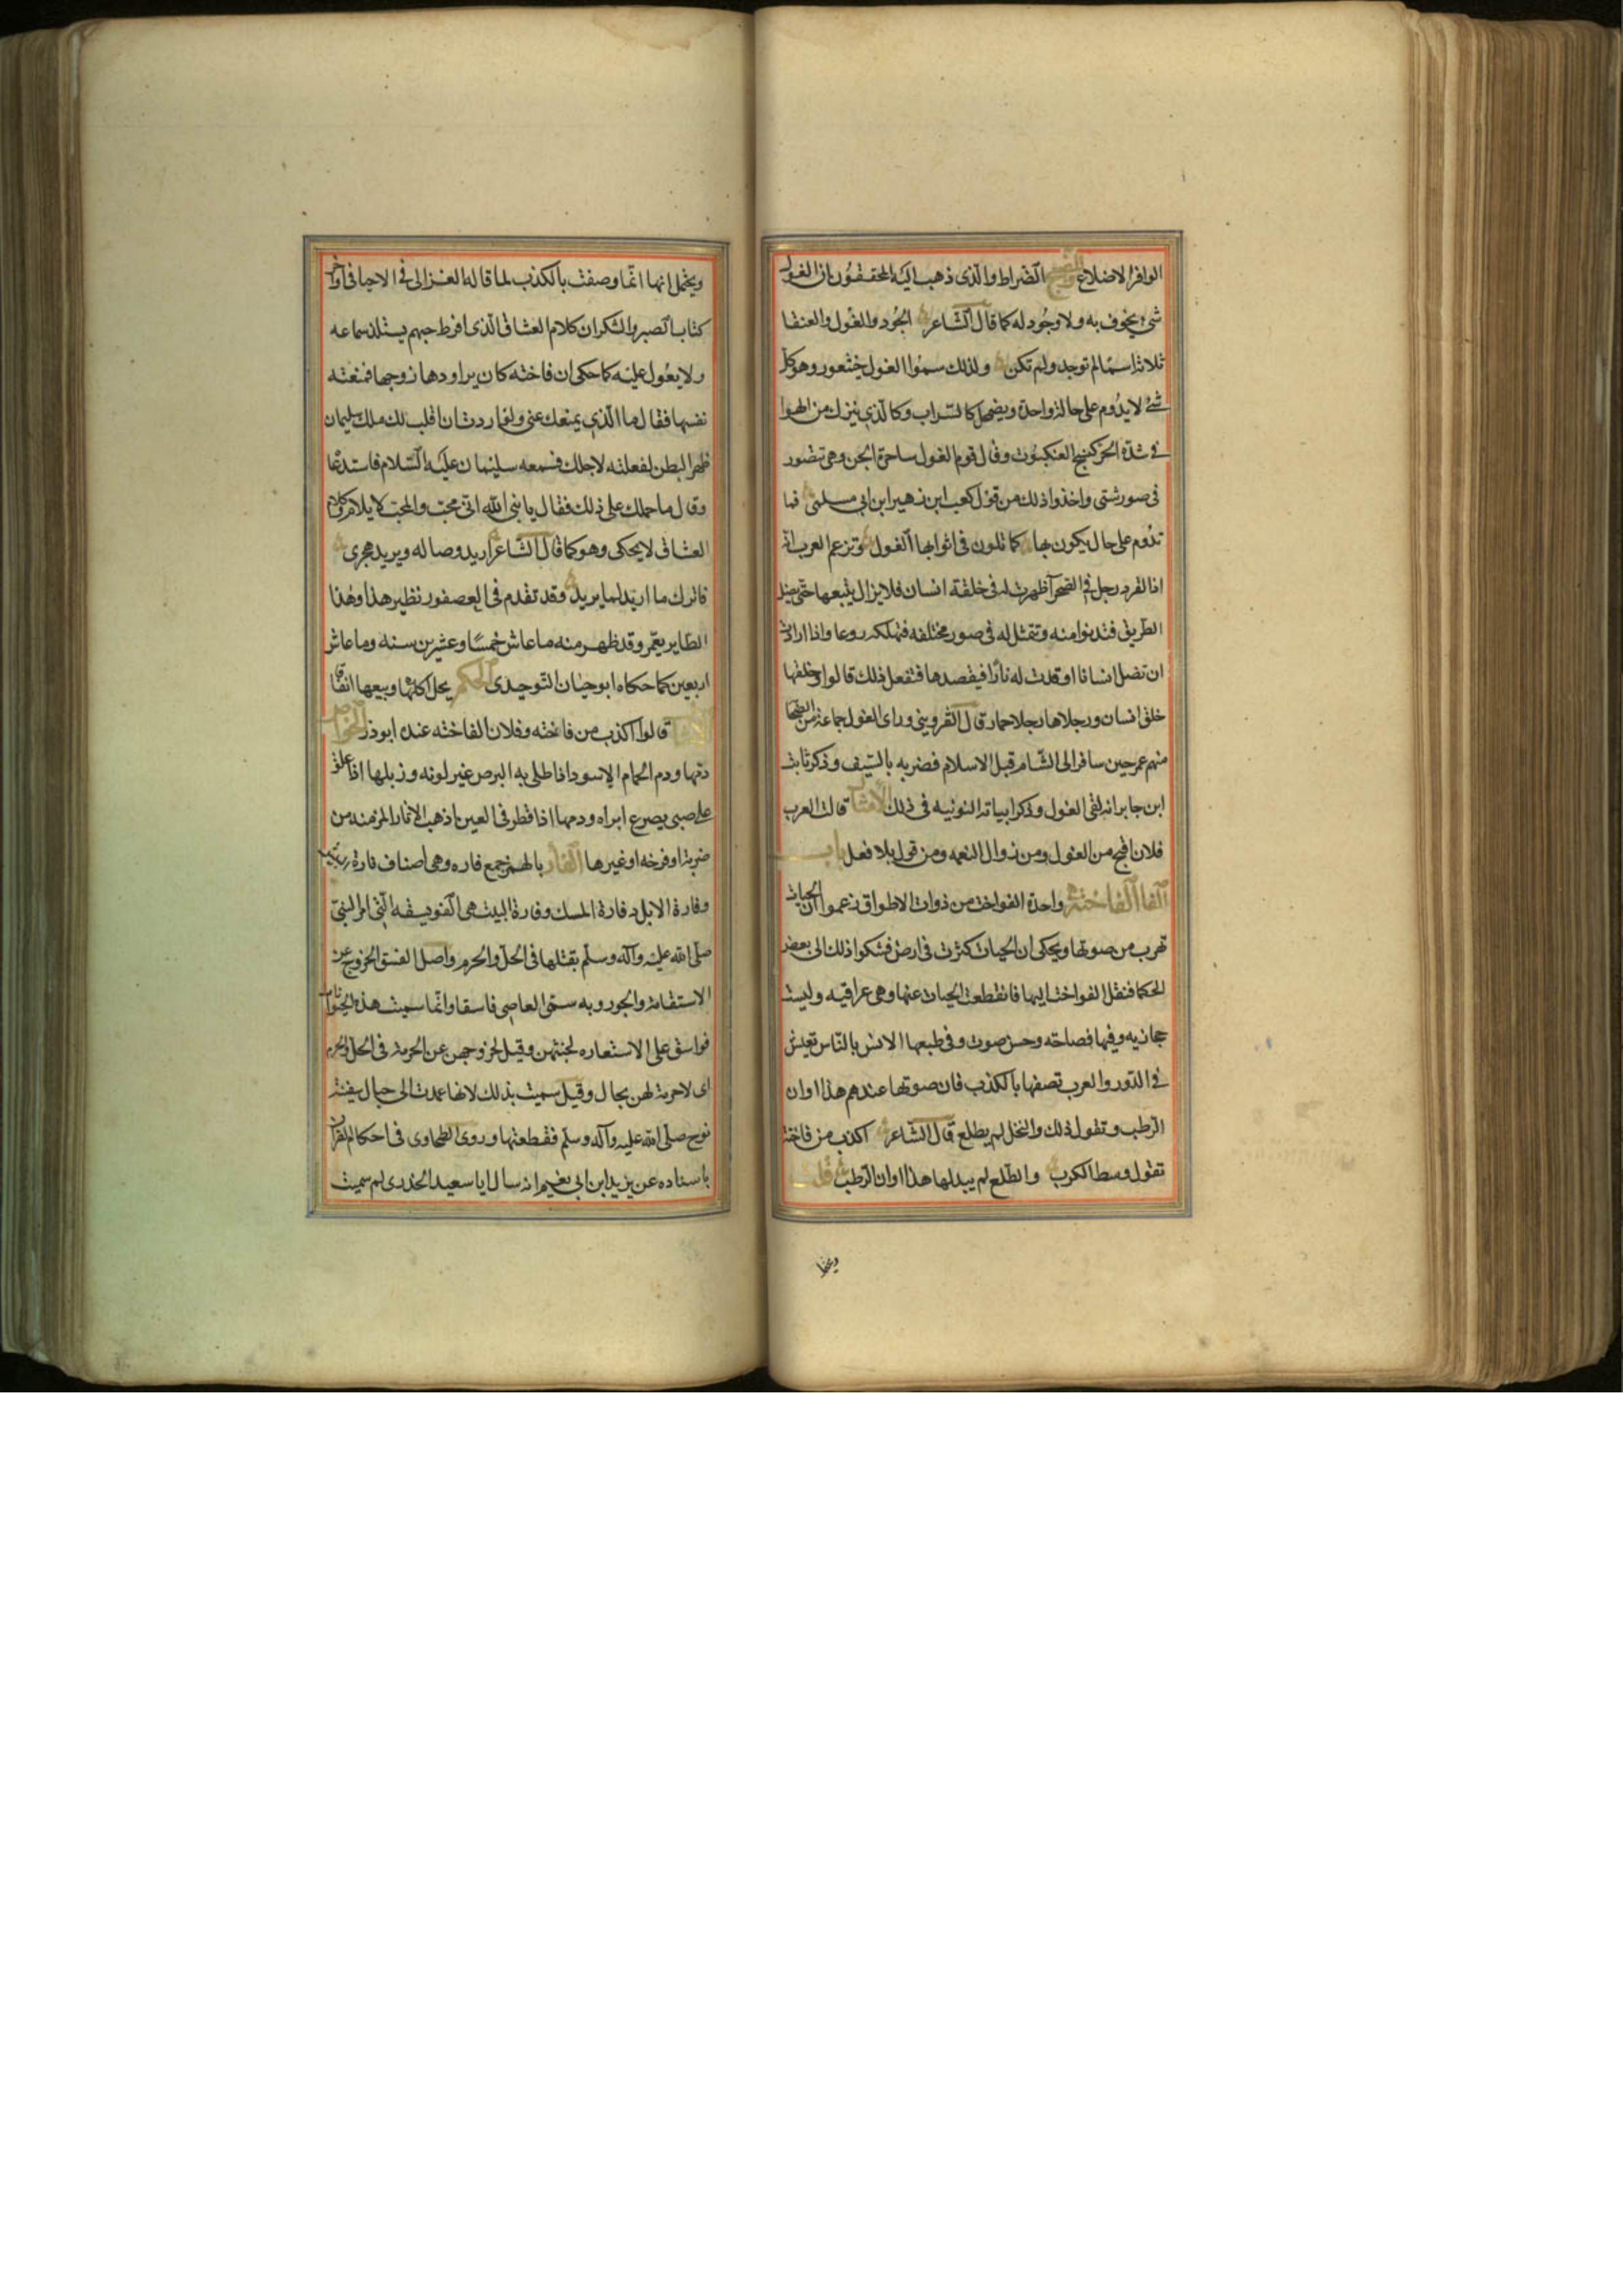 الوافر الاضلاع الضراط والذى ذهب اليه المحققون ان الغول
شىء يخوف به ولا وجود له كما قال الشاعر الجود والغول والعنقا
ثلاثة اسما لم توجد ولم تكن ولذلك سموا الغول خيتعور وهو كل
شئ لا يدوم على حالة واحدة ويضمحل كالسراب وكالذي ينزل من الهوا
فى شدة الحر كنسج العنكبوت وقال قوم الغول ساحرة الجن وهى تتصور
فى صور شتى واخذوا ذلك من قول كعب ابن زهير ابن ابى سلمى فما
تدوم على حال يكون بها كما تلون فى اثوابها الغول وتزعم العرب انه
اذا انفرد رجل فى الصحرا ظهرت له فى خلقة انسان فلا يزال يتبعها حتى يضل
الطريق فتدنوا منه وتتمثل له فى صور مختلفه فتهلكه روعا واذا ارادت
ان تضل انسانا اوقدت له نارا فيقصدها فتفعل ذلك قالوا وخلقها
خلق انسان ورجلاها رجلا حمار قال القزوينى وراى الغول جماعة من الصحابة
منهم عمر حين سافر الى الشام قبل الاسلام فضربه بالسيف وذكر ثابت
ابن جابر انه لقى الغول وذكر ابياته النونيه فى ذلك الأمثال قالت العرب
فلان اقبح من الغول ومن زوال النعمه ومن قول بلا فعل باب
الفا الفاختة واحدة الفواخت من ذوات الاطواق زعموا ان الحيات
تهرب من صوتها ويحكى ان الحيات كثرت فى ارض فشكوا ذلك الى بعض
الحكما فنقل الفواخت اليها فانقطعت الحيات عنها وهى عراقيه وليست
حجازيه وفيها فصاحته وحسن صوت وفى طبعها الانس بالناس تعيش
فى الدور والعرب تصفها بالكذب فان صوتها عندهم هذا اوان
الرطب وتقول ذلك والنخل لم يطلع قال الشاعر اكذب من فاختة
تقول وسط الكرب والطلع لم يبد لها هذا اوان الرطب قلت
ويحتمل
ويحتمل انها انما وصفت بالكذب لما قاله الغزالى فى الاحيا فى اواخر
كتاب الصبر والشكر ان كلام العشاق الذى افرط حبهم يستلذ سماعه
ولا يعول عليه كما حكى ان فاخته كان يراودها زوجها فمنعته
نفسها فقال ما الذي يمنعك عنى ولو اردت ان اقلب لك ملك سليمان
ظهرا لبطن لفعلته لاجلك فسمعه سليمان عليه السلام فاستدعا
وقال ما حملك على ذلك فقال يا نبى الله انى محب والمحب لا يلام وكلام
العشاق لا يحكى وهو كما قال الشاعر اريد وصاله ويريد هجرى
فاترك ما اريد لما يريد وقد تقدم فى العصفور نظير هذا وهذا
الطاير يعمر وقد ظهر منه ما عاش خمسا وعشرين سنه وما عاش
اربعين كما حكاه ابو حيان التوحيدى الحكم يحل اكلها وبيعها اتفاقا
قالوا اكذب من فاخته وفلان الفاخته عنده ابو ذر الخواص
دمها ودم الحمام الاسود اذا طلى به البرص غير لونه وزبلها اذا علق
على صبى يصرع ابراه ودمها اذا قطر فى العين اذهب الاثار المزمنه من
ضربة او قرحه او غيرها الفأر بالهمز جمع فاره وهى اصناف فارة
وفارة الابل وفارة المسك وفارة البيت هى الفويسقه التى امر النبى
صلى الله عليه وآله وسلم بقتلها فى الحل والحرم واصل الفسق الخروج عن
الاستقامة والجور وبه سمى العاصى فاسقا وانما سميت هذه الحيوانات
فواسق على الاستعاره لخبثهن وقيل لخروجهن عن الحرمة فى الحل والحرم
اى لاحرمة لهن بحال وقيل سميت بذلك لانها عمدت الى حبال سفينة
نوح صلى الله عليه وآله وسلم فقطعتها وروى الطحاوى فى احكام القرآن
باسناده عن يزيد ابن ابى نعيم انه سال ابا سعيد الخدرى لم سميت